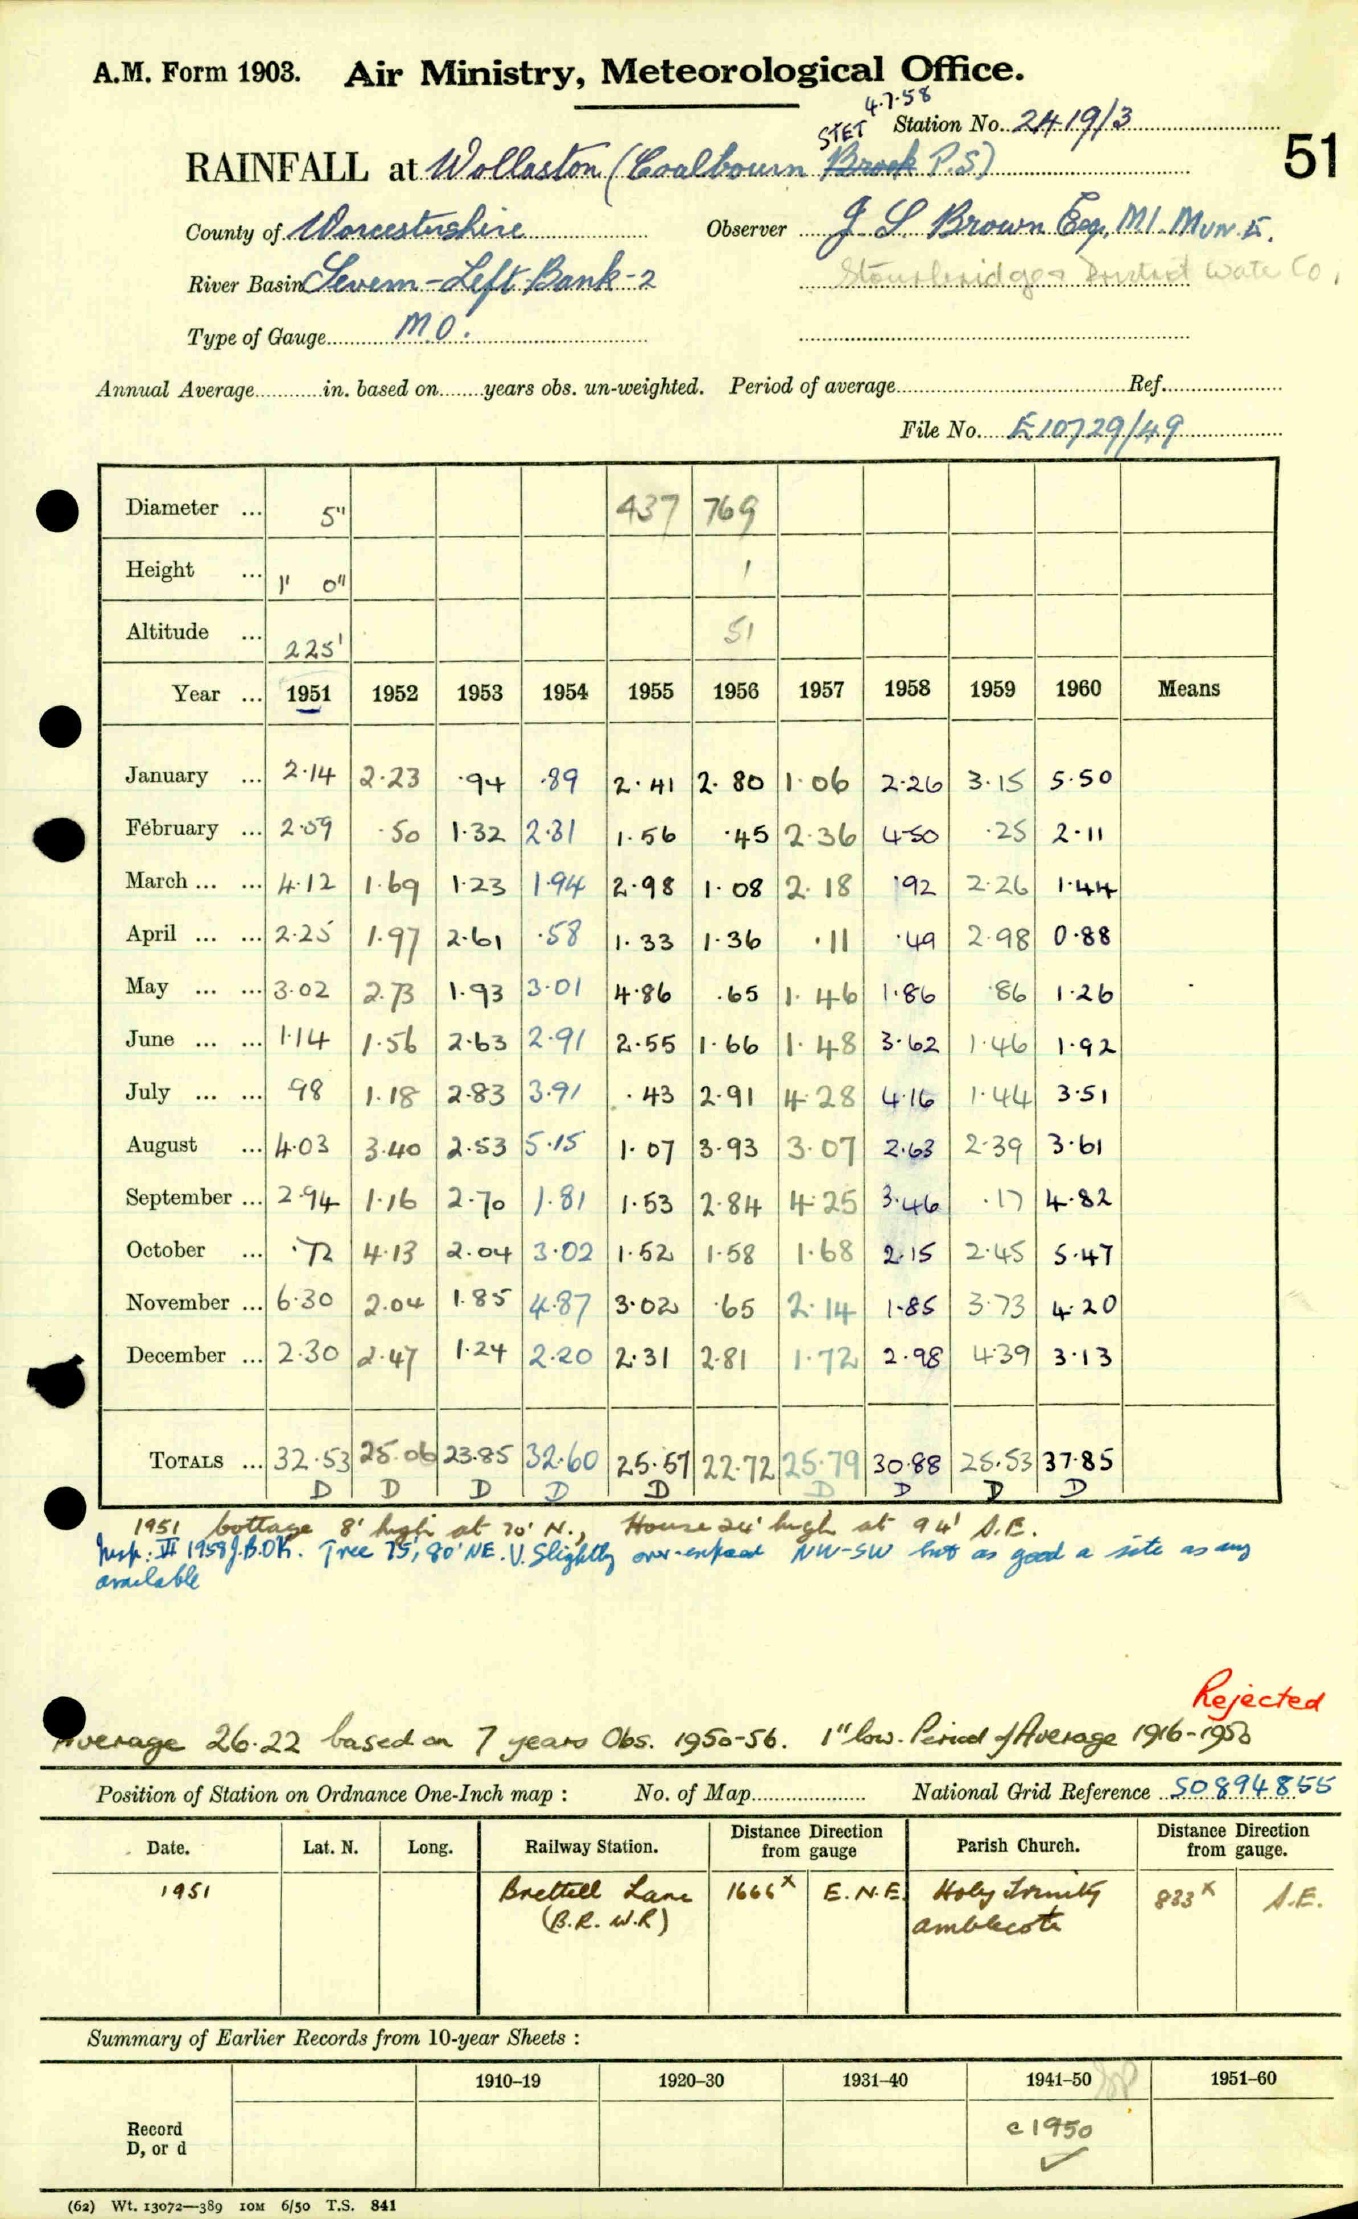 A.M. Form 1903. Air Ministry, Meteorological Office.
4.7.58
STET Station No. 2419/3
51
RAINFALL at Wollaston (Coalbourn Brook P.S)
County of Worcestershire Observer J S. Brown Esq, M.I. Mun. E.
River Basin Severn - Left Bank - 2 Stourbridge & District Water Co,
Type of Gauge M.O.
Annual Average in. based on years obs. un-weighted. Period of average Ref.
File No. E10729/49
Diameter ... 5" 437 769
Height ... 1' 0" 1
Altitude ... 225' 51
Year ... 1951 1952 1953 1954 1955 1956 1957 1958 1959 1960 Means
January ... 2.14 2.23 .94 .89 2.41 2.80 1.06 2.26 3.15 5.50
February ... 2.59 .50 1.32 2.31 1.56 .45 2.36 4.50 .25 2.11
March ... ... 4.12 1.69 1.23 1.94 2.98 1.08 2.18 .92 2.26 1.44
April ... ... 2.25 1.97 2.61 .58 1.33 1.36 .11 .49 2.98 0.88
May ... ... 3.02 2.73 1.93 3.01 4.86 .65 1.46 1.86 .86 1.26
June ... ... 1.14 1.56 2.63 2.91 2.55 1.66 1.48 3.62 1.46 1.92
July ... ... 98 1.18 2.83 3.91 .43 2.91 4.28 4.16 1.44 3.51
August ... 4.03 3.40 2.53 5.15 1.07 3.93 3.07 2.63 2.39 3.61
September ... 2.94 1.16 2.70 1.81 1.53 2.84 4.25 3.46 .17 4.82
October ... .72 4.13 2.04 3.02 1.52 1.58 1.68 2.15 2.45 5.47
November ... 6.30 2.04 1.85 4.87 3.02 .65 2.14 1.85 3.73 4.20
December ... 2.30 2.47 1.24 2.20 2.31 2.81 1.72 2.98 4.39 3.13
TOTALS ... 32.53 25.06 23.85 32.60 25.57 22.72 25.79 30.88 25.53 37.85
D D D D D D D D D
1951 Cottage 8' high at 70' N., House 24' high at 94' S.E.
Insp: VI 1958 J.B.OK. Tree 75', 80' NE. V. Slightly over-exposed NW-SW but as good a site as any
available
Rejected
Average 26.22 based on 7 years Obs. 1950-56. 1" low. Period of Average 1916-1950
Position of Station on Ordnance One-Inch map : No. of Map National Grid Reference SO894855
Date. Lat. N. Long. Railway Station. Distance from Direction gauge Parish Church. Distance from Direction gauge.
1951 Brettell Lane 1666x E.N.E. Holy Trinity 833x S.E.
(B.R. W.R) Amblecote
Summary of Earlier Records from 10-year Sheets :
1910–19 1920–30 1931–40 1941–50 1951–60
Record c 1950
D, or d ✓
(62) Wt. 13072—389 10M 6/50 T.S. 841